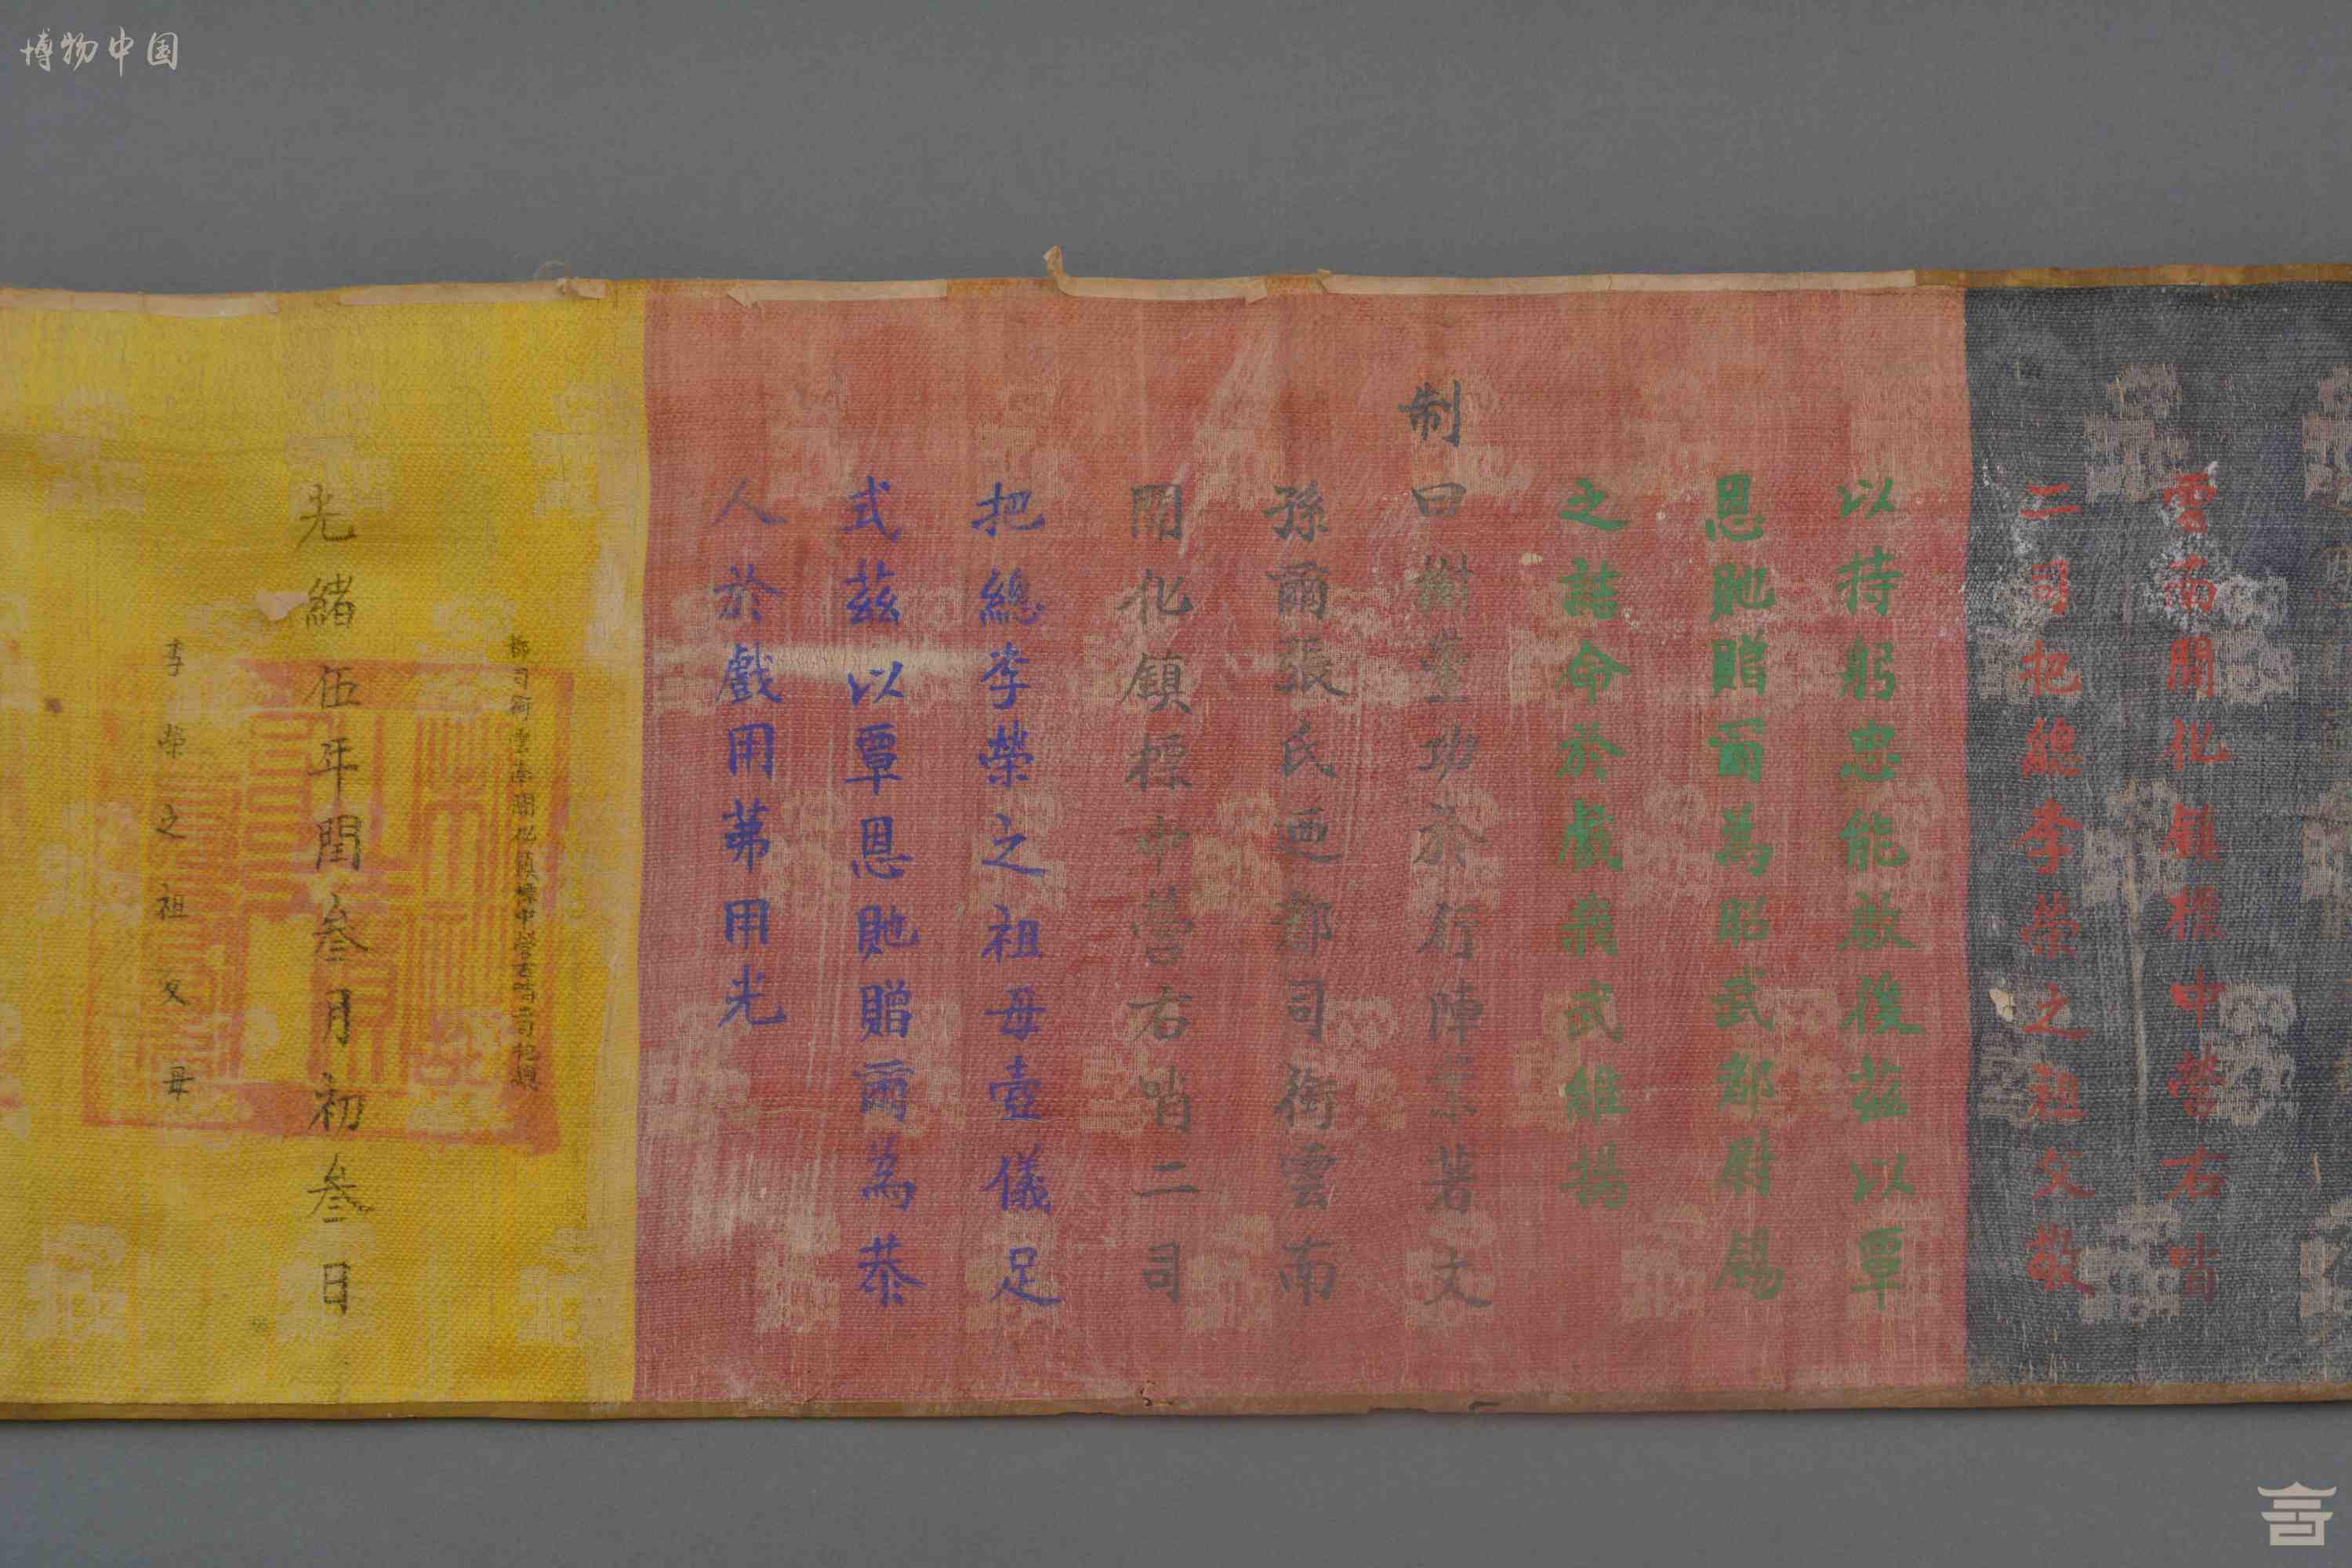 博物中国
雲南開化鎮標中營右哨
二司把總李榮之祖父敬
以持躬忠能啟後茲以覃
恩貤贈爾為昭武都尉錫
之誥命於戲我武維揚
制
曰樹豐功於行陣業著文
孫爾張氏迺都司銜雲南
開化鎮標中營右哨二司
把總李榮之祖母壼儀足
式茲以覃恩貤贈爾為恭
人於戲用茀用光
都司銜雲南開化鎮標中營右哨二司把總
光緒伍年閏叁月初叁日
李榮之祖父母